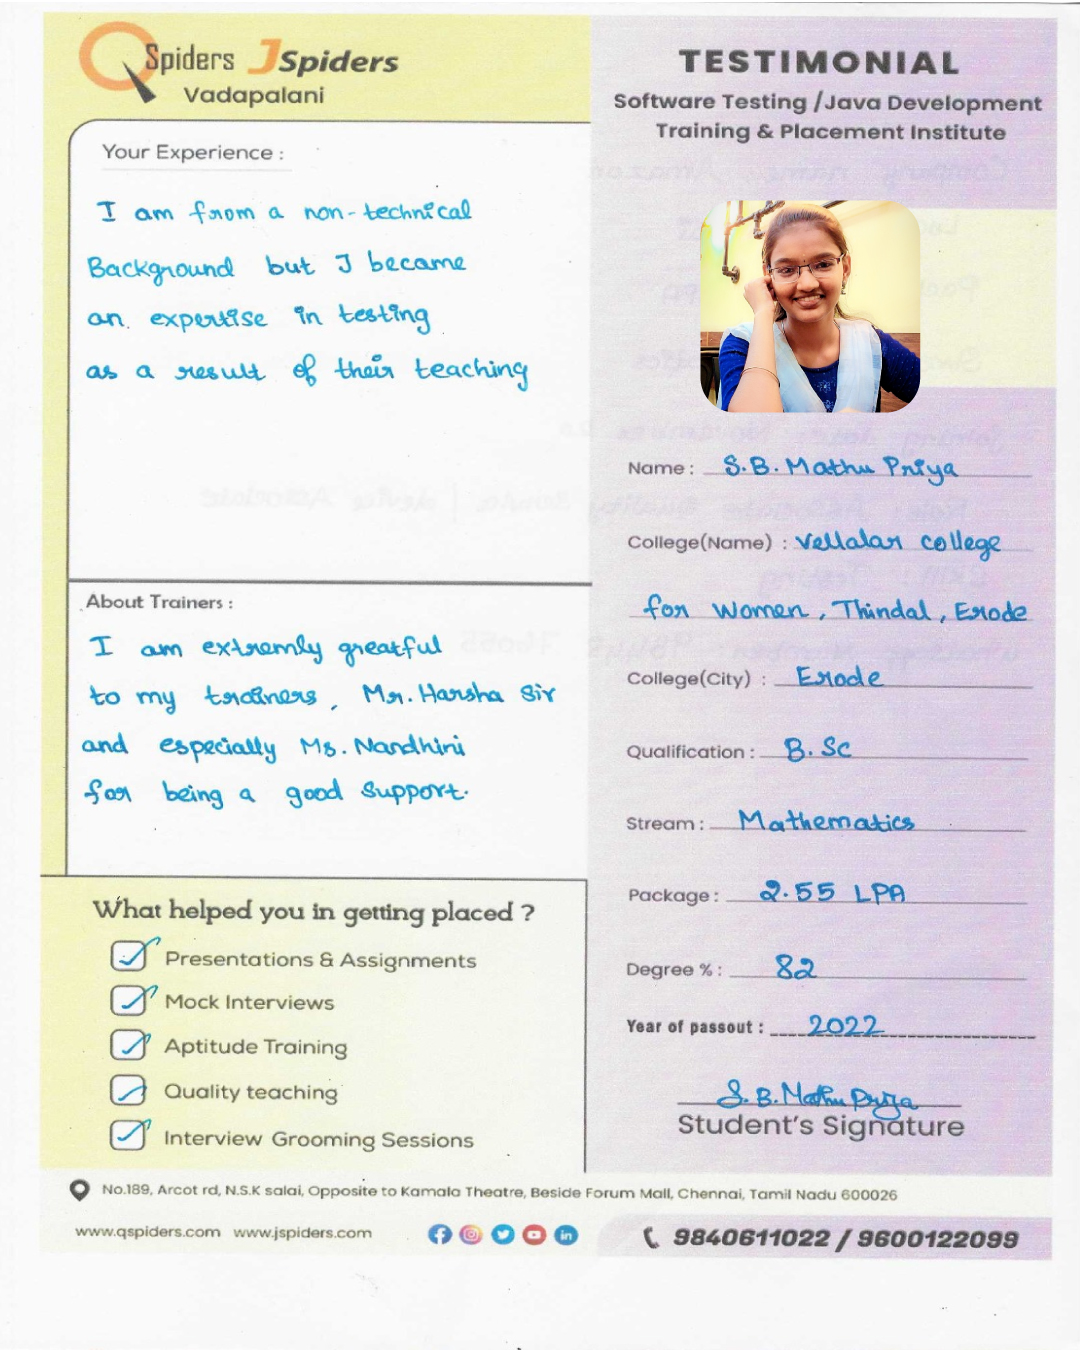 QSpiders JSpiders
Vadapalani
TESTIMONIAL
Software Testing /Java Development
Training & Placement Institute
Your Experience :
I am from a non-technical
Background but I became
an expertise in testing
as a result of their teaching
Name : S.B. Mathu Priya
College(Name) : Vellalar college
for Women, Thindal, Erode
College(City) : Erode
Qualification : B.Sc
Stream : Mathematics
Package : 2.55 LPA
Degree % : 82
Year of passout : 2022
S.B. Mathu Priya
Student's Signature
About Trainers :
I am extremly greatful
to my trainers, Mr. Harsha Sir
and especially Ms. Nandhini
for being a good Support.
What helped you in getting placed ?
Presentations & Assignments
Mock Interviews
Aptitude Training
Quality teaching
Interview Grooming Sessions
No.189, Arcot rd, N.S.K salai, Opposite to Kamala Theatre, Beside Forum Mall, Chennai, Tamil Nadu 600026
www.qspiders.com www.jspiders.com
9840611022 / 9600122099